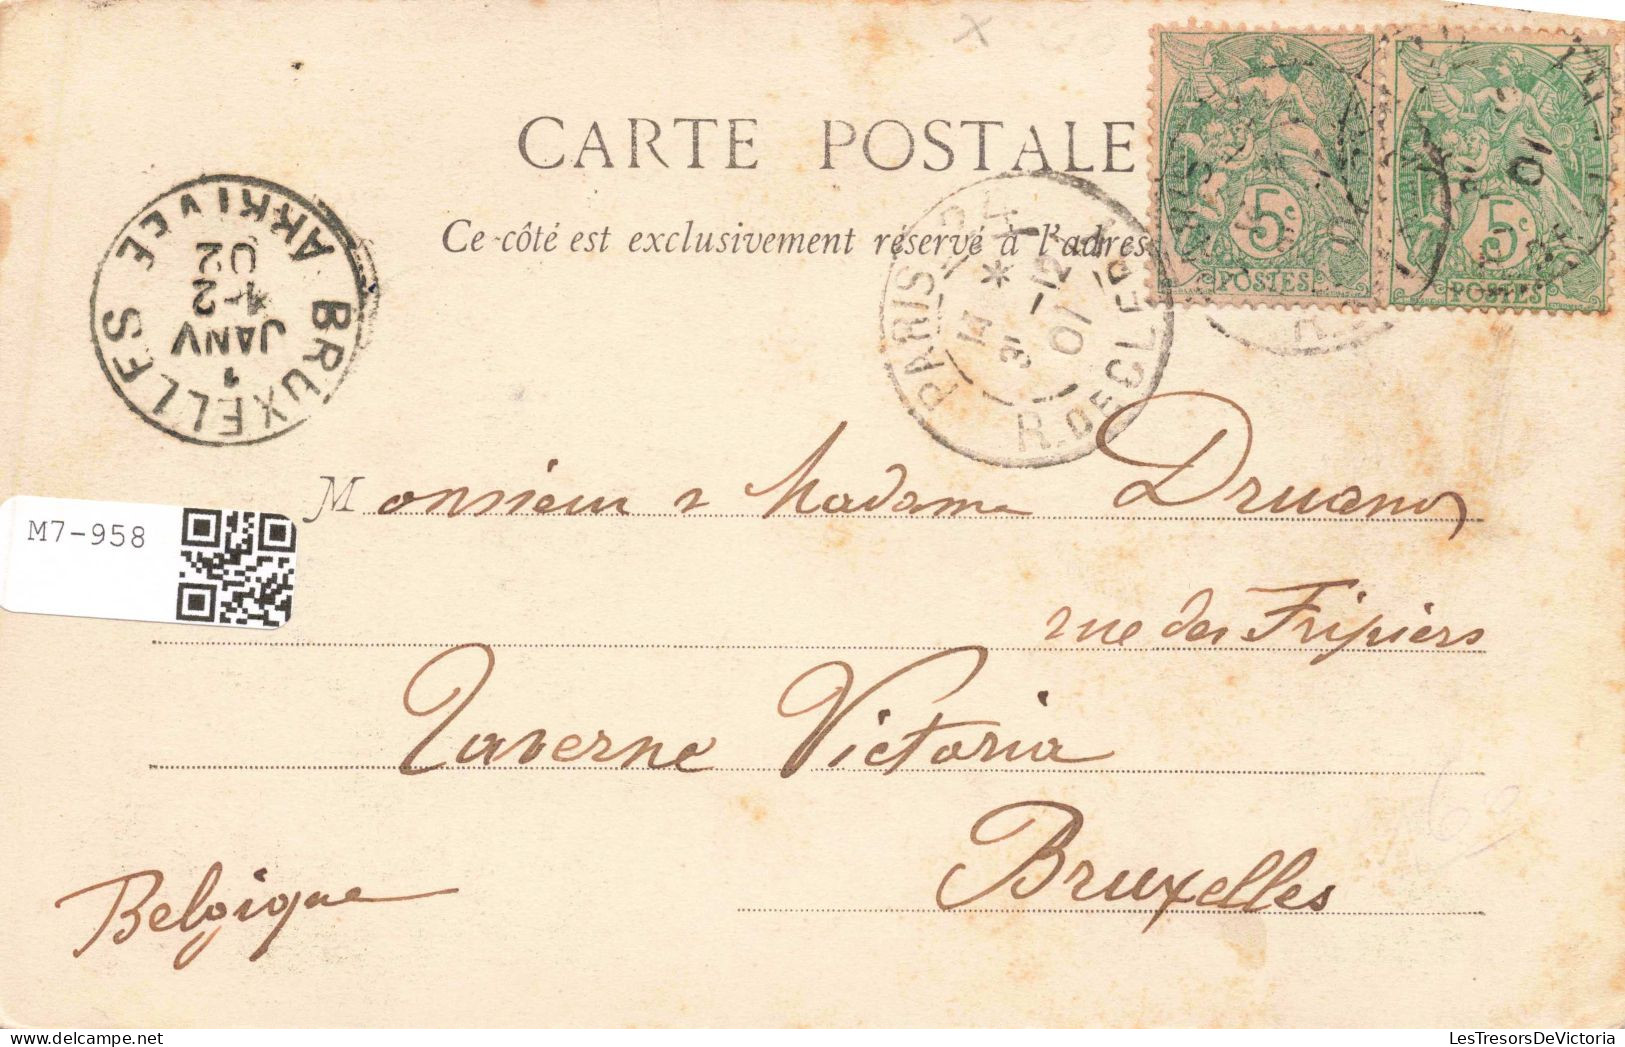 CARTE POSTALE
Ce côté est exclusivement réservé à l'adres
5c
POSTES
5c
POSTES
BRUXELLES ARRIVÉE
1
JANV
4-2
02
PARIS
31 -12
01
R. DE CLER
M7-958
Monsieur & Madame Druand
rue des Fripiers
Taverne Victoria
Bruxelles
Belgique
60
LesTresorsDeVictoria